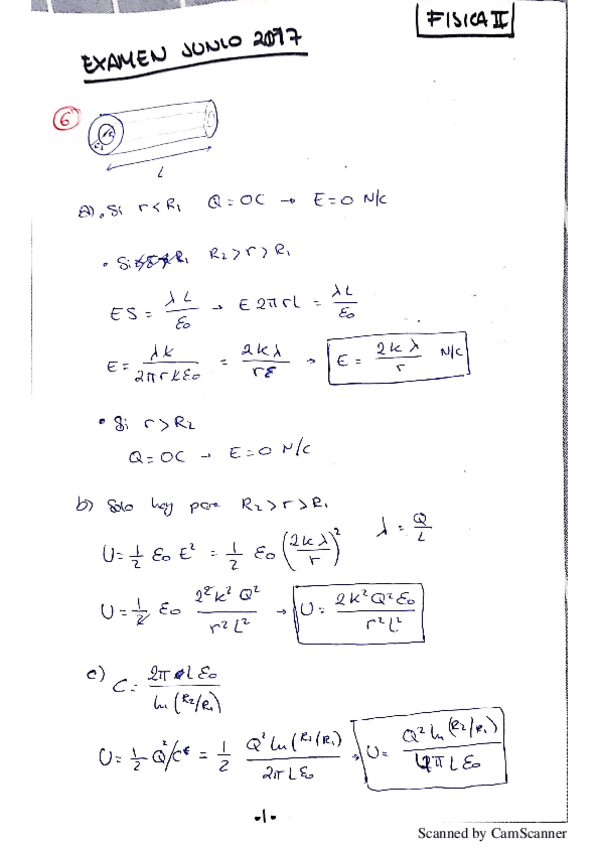 FISICA II
EXAMEN JUNIO 2017
6
L
a). Si r < R1 Q = 0C → E = 0 N/C
• Si R1 R2 > r > R1
ES = λL/ε0 → E 2πrL = λL/ε0
E = λk/2πrkε0 = 2kλ/rε → E = 2kλ/r N/C
• Si r > R2
Q = 0C → E = 0 N/C
b) Solo hay para R2 > r > R1
U = 1/2 ε0 E² = 1/2 ε0 (2kλ/r)² λ = Q/L
U = 1/2 ε0 2²k²Q²/r²L² → U = 2k²Q²ε0/r²L²
c) C = 2πLε0/ln(R2/R1)
U = 1/2 Q²/C = 1/2 Q² ln(R1/R1)/2πLε0 → U = Q² ln(R2/R1)/4πLε0
-1-
Scanned by CamScanner